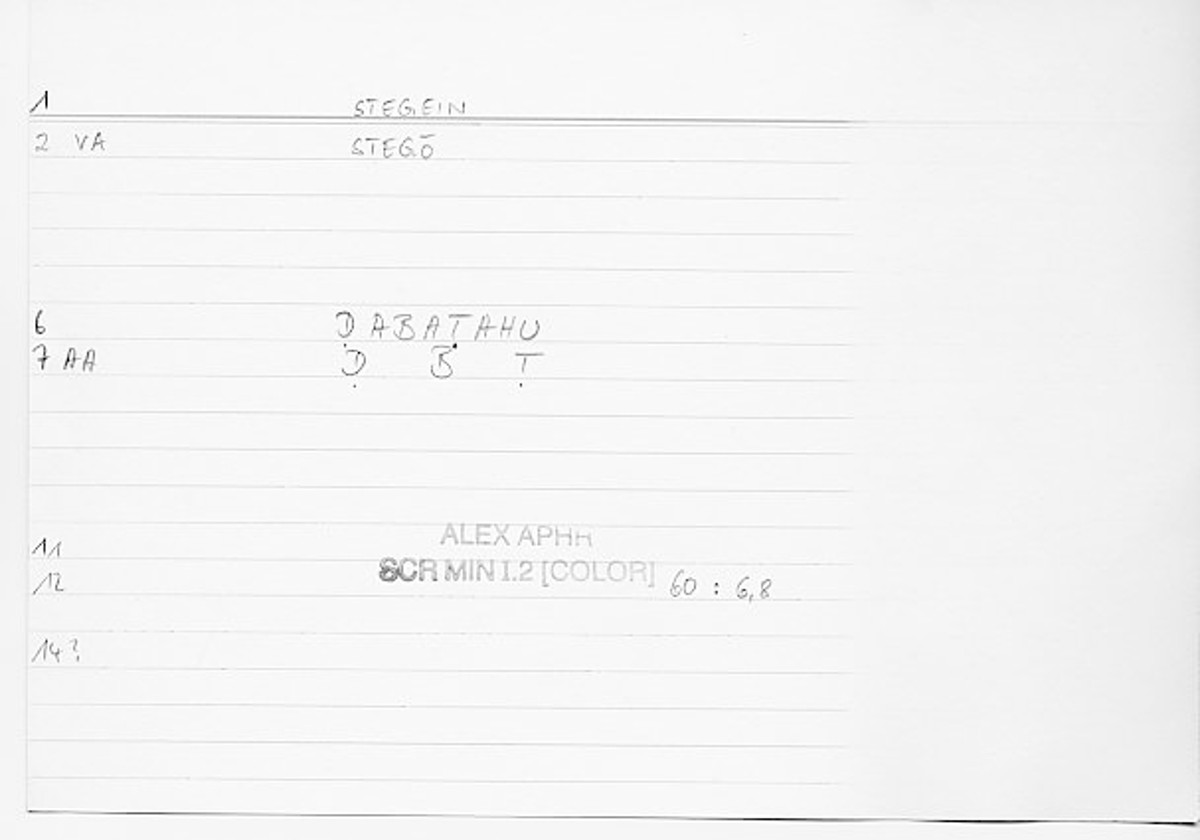 1 STEGEIN
2 VA STEGŌ
6 ḌABAṬAHU
7 AA Ḍ B Ṭ
11 ALEX APHR
12 SCR MIN I.2 [COLOR] 60 : 6,8
14?